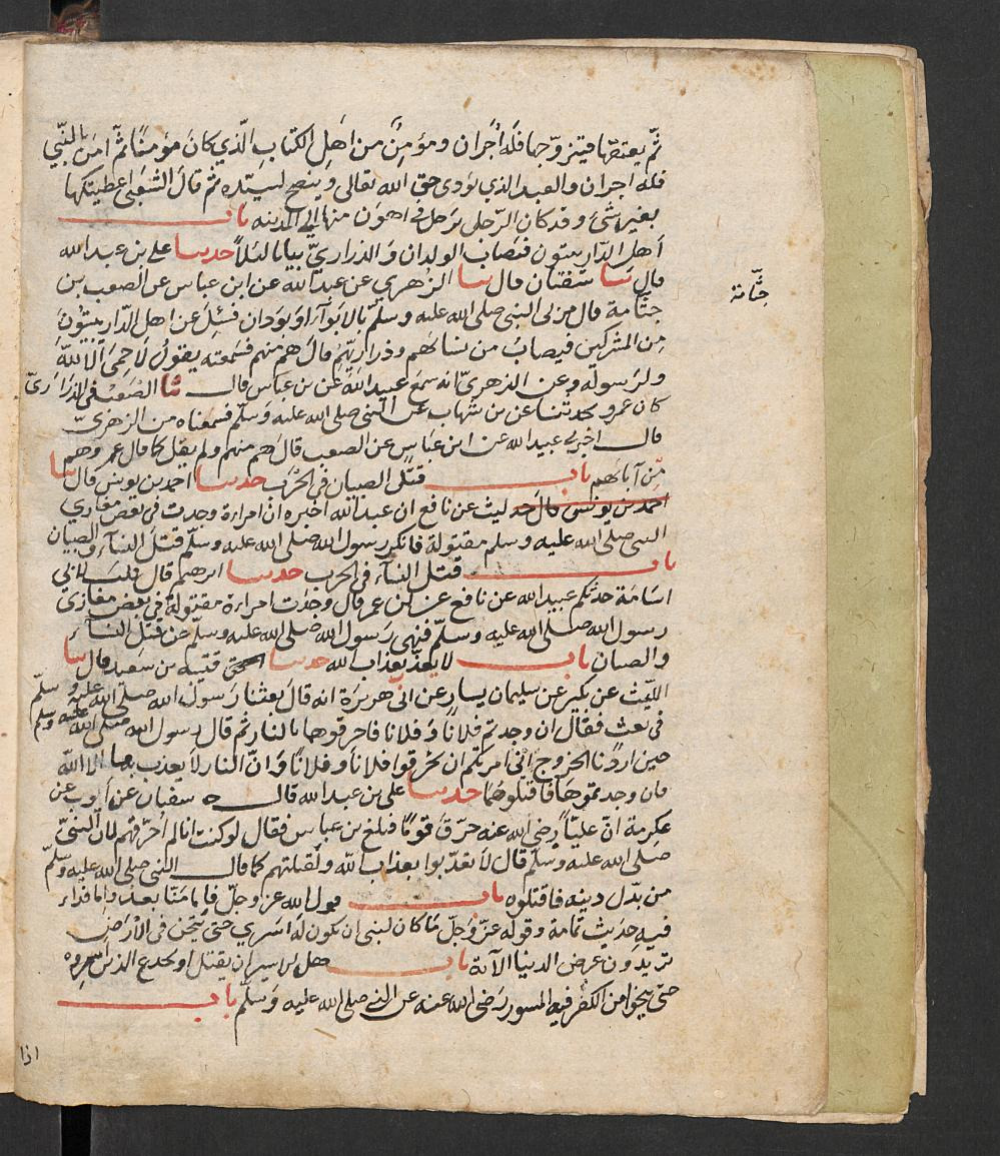 ثمّ يعتقها فيتزوّجها فله أجران ومؤمن من اهل الكتاب الّذي كان مؤمنا ثمّ امن بالنبّي
فله اجران والعبد الذي يؤدي حق الله تعالى وينصح لسيّده ثم قال الشعبي اعطيتكها
بغير شئ وقد كان الرّجل يرحل في اهون منها الى المدينه باب
أهل الدّار يبيتون فيصاب الولدان والذراريّ بياتا ليلاً حدسا علي بن عبد الله
قال سا سفيان قال سا الزهري عن عبيد الله عن ابن عباس عن الصعب بن
جثّامة قال مر بي النبي صلى الله عليه وسلّم بالابوآء او بودان فسُئِلَ عن اهل الدّار يبيّتون
مِن المشركين فيصاب من نسائهم وذراريّهم قال هم منهم فسمعته يقول لا حمى الّا للّه
ولرسوله وعن الزهريّ انه سمع عبيد الله عن بن عباس قال ثنا الصّعب في الذراريّ
كان عمرو يحدثنا عن بن شهاب عن النبي صلى الله عليه وسلّم فسمعناه من الزهريّ
قال اخبرني عبيد الله عن ابن عباس عن الصعب قال هم منهم ولم يقل كما قال عمرو هم
مِّن آبائهم باب قتل الصبيان في الحرب حدسا احمد بن يونس قال سا
احمد بن يونس قال حد ليث عن نافع ان عبد الله اخبره ان امراءة وجدت في بعض مغازي
النبي صلى الله عليه وسلم مقتولة فانكر رسول الله صلى الله عليه وسلّم قتل النسآء والصبيان
باب قتل النسآء في الحرب حدسا ابرهيم قال قلت لابي
اسامة حدثكم عبيد الله عن نافع عن بن عمر قال وجدت امراءة مقتولة في بعض مغازي
رسول الله صلى الله عليه وسلّم فنهى رسول الله صلى الله عليه وسلّم عن قتل النسآء
والصبيان باب لا يعذّب بعذاب الله حدسا قتيبه بن سعيد قال سا
اللّيث عن بكير عن سليمان يسار عن ابي هريرة انه قال بعثنا رسول الله صلى الله عليه وسلّم
في بعث فقال ان وجدتم فلانا وفلانا فاحرقوهما بالنار ثم قال رسول الله صلى الله عليه وسلم
حين اردنا الخروج انّي امرتكم ان تحرّقوا فلانا وفلانا وانّ النار لا يعذب بها الا اللّه
فان وجدتموهما فاقتلوهما حدسا علي بن عبد الله قال سفيان عن ايوب عن
عكرمة انّ عليّاً رضي الله عنه حرّق قومًا فبلغ بن عباس فقال لو كنت انا لم أحرّقهم لانّ النبيّ
صلى الله عليه وسلّم قال لا تعذّبوا بعذاب اللّه ولقتلتهم كما قال النبي صلى الله عليه وسلّم
من بدّل دينه فاقتلوه باب قول الله عز وجلّ فاما منّا بعد واما فداء
فيه حديث ثمامة وقوله عزّ وجلّ ما كان لنبي ان يكون له اسرى حتى يثخن في الأرض
تريدون عرض الدنيا الآية باب هل للاسير ان يقتل او يخدع الذين اسروه
حتى ينجوا من الكفر فيه المسور رضي الله عنه عن النبي صلى الله عليه وسلّم باب
جثّامة
اذا